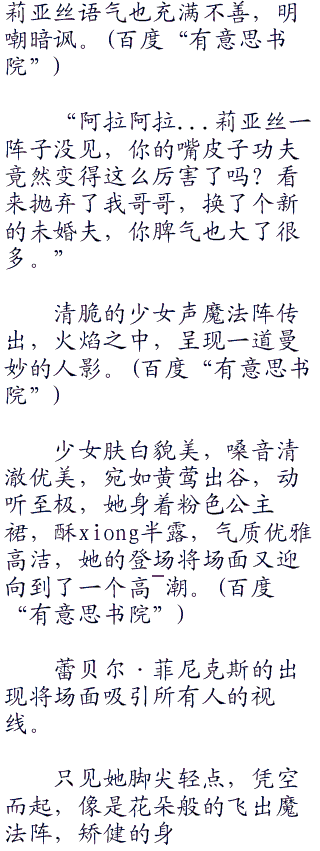 莉亚丝语气也充满不善，明
嘲暗讽。(百度“有意思书
院”)
“阿拉阿拉...莉亚丝一
阵子没见，你的嘴皮子功夫
竟然变得这么厉害了吗？看
来抛弃了我哥哥，换了个新
的未婚夫，你脾气也大了很
多。”
清脆的少女声魔法阵传
出，火焰之中，呈现一道曼
妙的人影。(百度“有意思书
院”)
少女肤白貌美，嗓音清
澈优美，宛如黄莺出谷，动
听至极，她身着粉色公主
裙，酥xiong半露，气质优雅
高洁，她的登场将场面又迎
向到了一个高¯潮。(百度
“有意思书院”)
蕾贝尔·菲尼克斯的出
现将场面吸引所有人的视
线。
只见她脚尖轻点，凭空
而起，像是花朵般的飞出魔
法阵，矫健的身